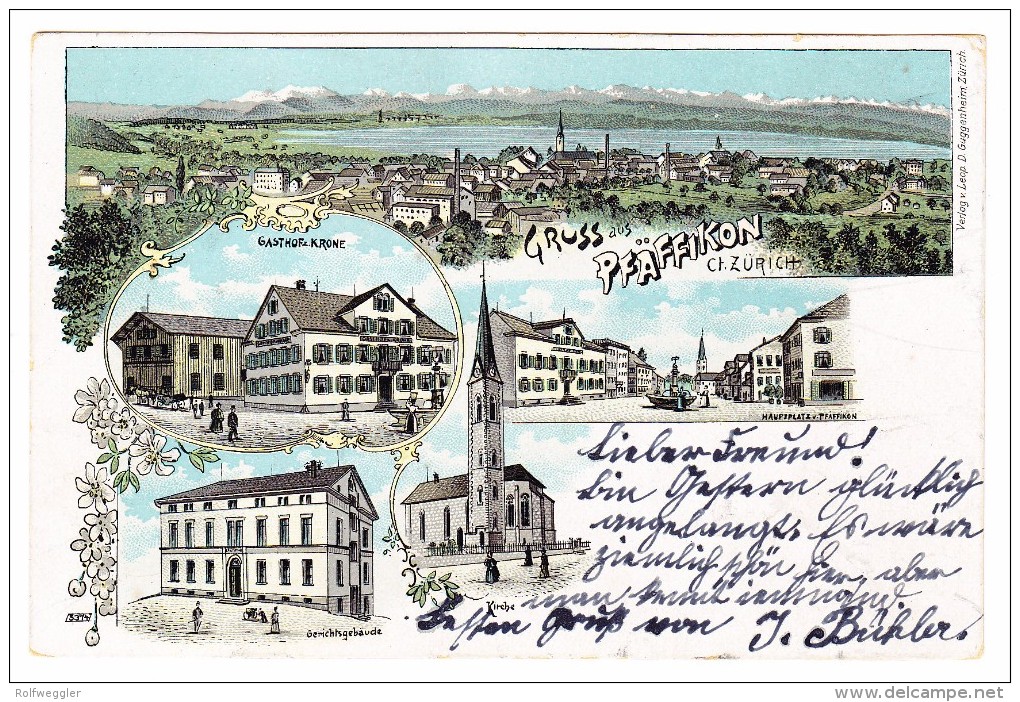 Verlag v. Leop D. Guggenheim, Zürich.
GRUSS aus
PFÄFFIKON
Ct. ZÜRICH
GASTHOF Z. KRONE
HAUPTPLATZ v. PFÄFFIKON
Lieber Freund!
bin Gestern glücklich
angelangt. Es wäre
ziemlich schön hier, aber
man kennt iemmand.
Besten Gruß von J. Bühler.
Kirche
Gerichtsgebäude
Rolfweggler
www.delcampe.net